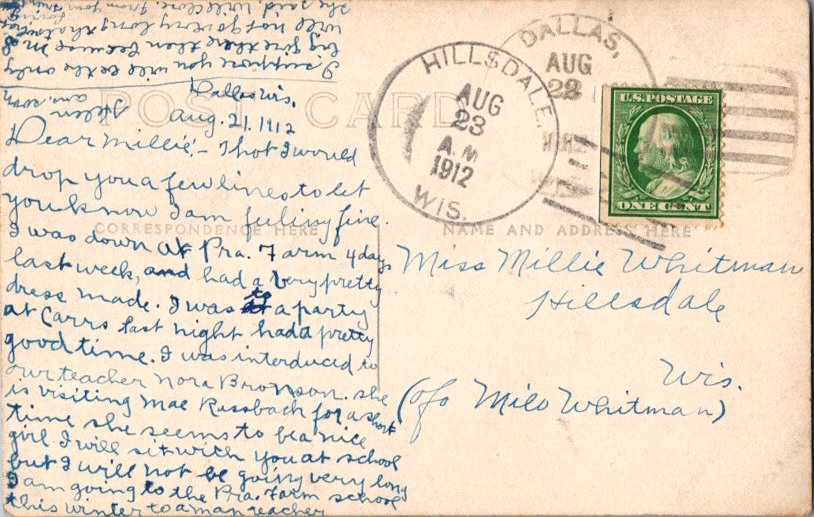 POST CARD
CORRESPONDENCE HERE
NAME AND ADDRESS HERE
HILLSDALE,
AUG
23
A.M
1912
WIS.
DALLAS,
AUG
U.S. POSTAGE
ONE CENT
Dallas Wis,
Aug. 21, 1912
Dear Millie:- I thot I would
drop you a few lines to let
you know I am feeling fine.
I was down at Pra. Farm 4 days
last week, and had a very pretty
dress made. I was to a party
at Carrs last night had a pretty
good time. I was interduced to
our teacher Nora Bronson. she
is visiting Mae Rassbach for a short
time she seems to be a nice
girl I will sit with you at school
but I will not be going very long
I am going to the Pra. Farm school
this winter to a man teacher
I suppose you will be the only
big girl there then because
will not go very long
she said.
ans. soon
Miss Millie Whitman
Hillsdale
Wis.
(c/o Milo Whitman)